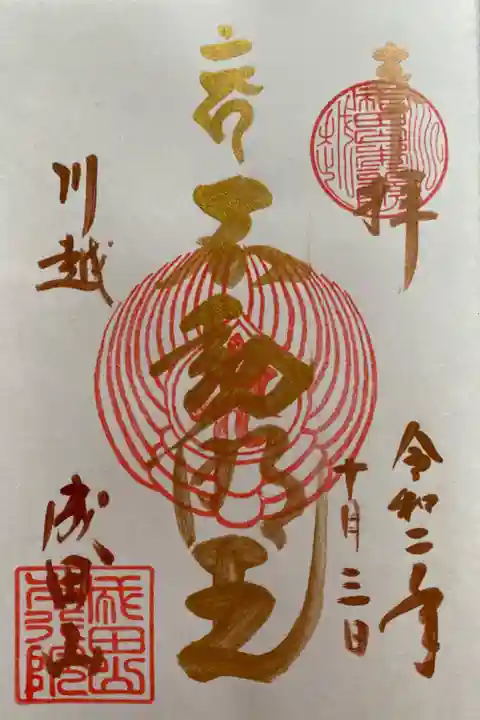 奉拝
令和二年
十月三日
不動明王
川越
成田山
成田山
本行院